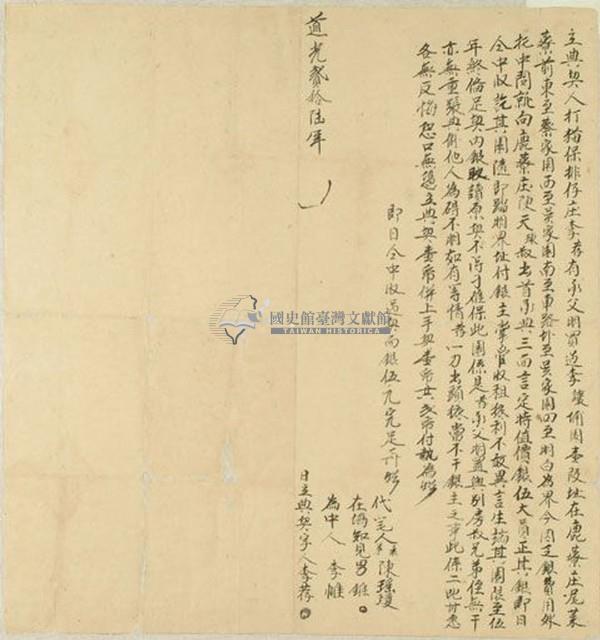 立典契人打猫保排仔庄李存有承父明買過李讓埔園壹段址在鹿藔庄尾菜
藔前東至蔡家園西至吳家園南至車路北至吳家園四至明白為界今因乏銀費用外
托中問就向鹿藔庄陳天叔出首承典三面言定時值價銀伍大員正其銀即日
仝中收訖其園隨即踏明界址付銀主掌管收租抵利不敢異言生端其園限至伍
年終備足契內銀取贖原契不得刁難保此園係是存承父明置與別房叔兄弟侄無干
亦無重張典掛他人為碍不明如有等情存一力出頭抵當不干銀主之事此係二比甘愿
各無反悔恐口無憑立典契壹帋併上手契壹帋共弍帋付執為炤
即日仝中收過契內銀伍大元完足再炤
國史館臺灣文獻館
TAIWAN HISTORICA
代笔人 陳瑤瓊
在塲知見男 雖
為中人 李帷
道光貳拾陸年 日立典契字人李存